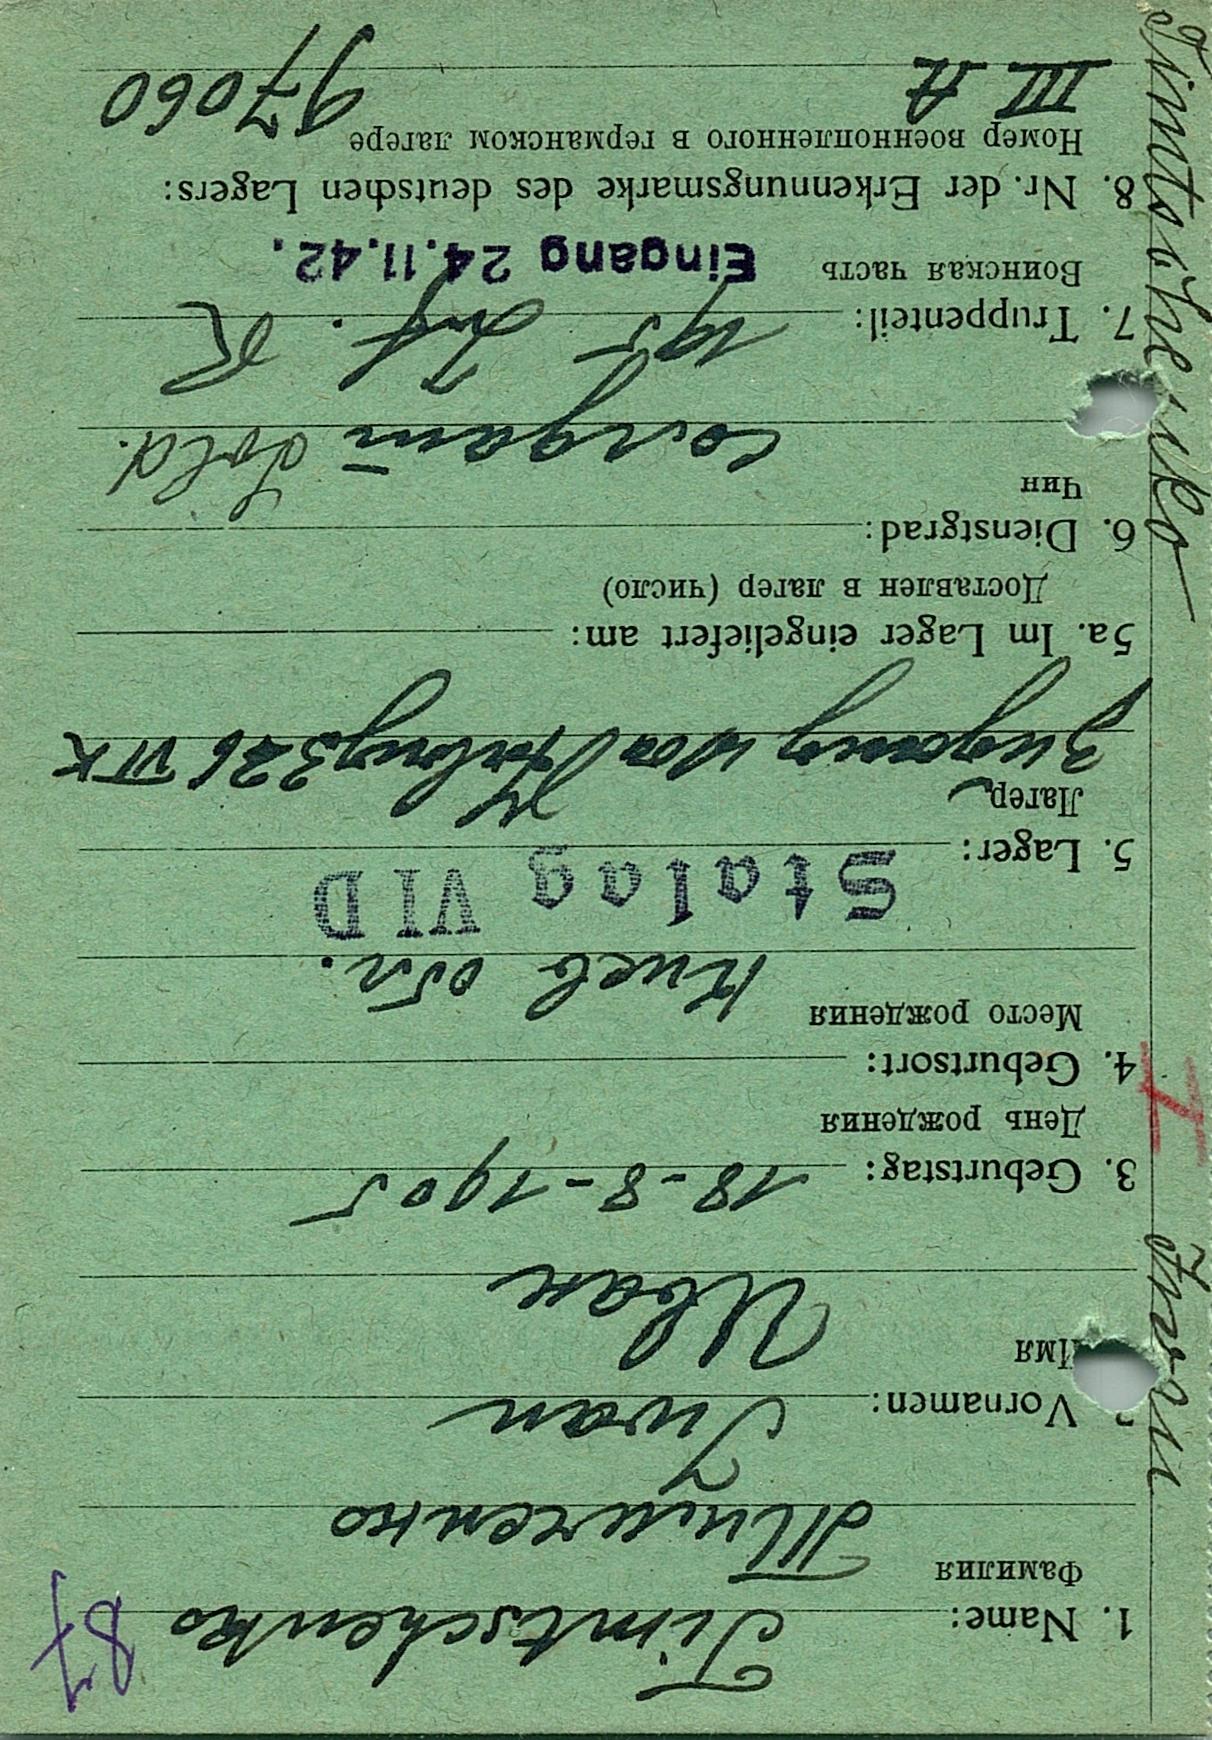 1. Name: Timtschenko 87
Фамилия
Тимченко
Vornamen: Iwan
Имя
Иван
3. Geburtstag: 18-8-1905
День рождения
4. Geburtsort:
Место рождения Киев обл.
Stalag VI D
5. Lager:
Лагер
Zugang von Stalag 326 VI K
5a. Im Lager eingeliefert am:
Доставлен в лагер (число)
6. Dienstgrad:
Чин
солдат Sold.
7. Truppenteil: 195 Inf. R
Воинская часть Eingang 24.11.42.
8. Nr. der Erkennungsmarke des deutschen Lagers:
Номер военнопленного в германском лагере
III A 97060
Timtschenko Iwan